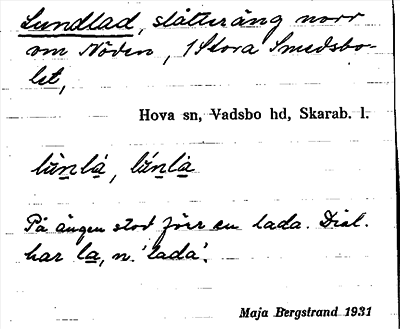 Lundlad, slåtteräng norr
om Nöden, 1 Stora Smedsbo-
let,
Hova sn, Vadsbo hd, Skarab. l.
På ängen stod förr en lada. Dial.
har la, n. 'lada'.
Maja Bergstrand 1931